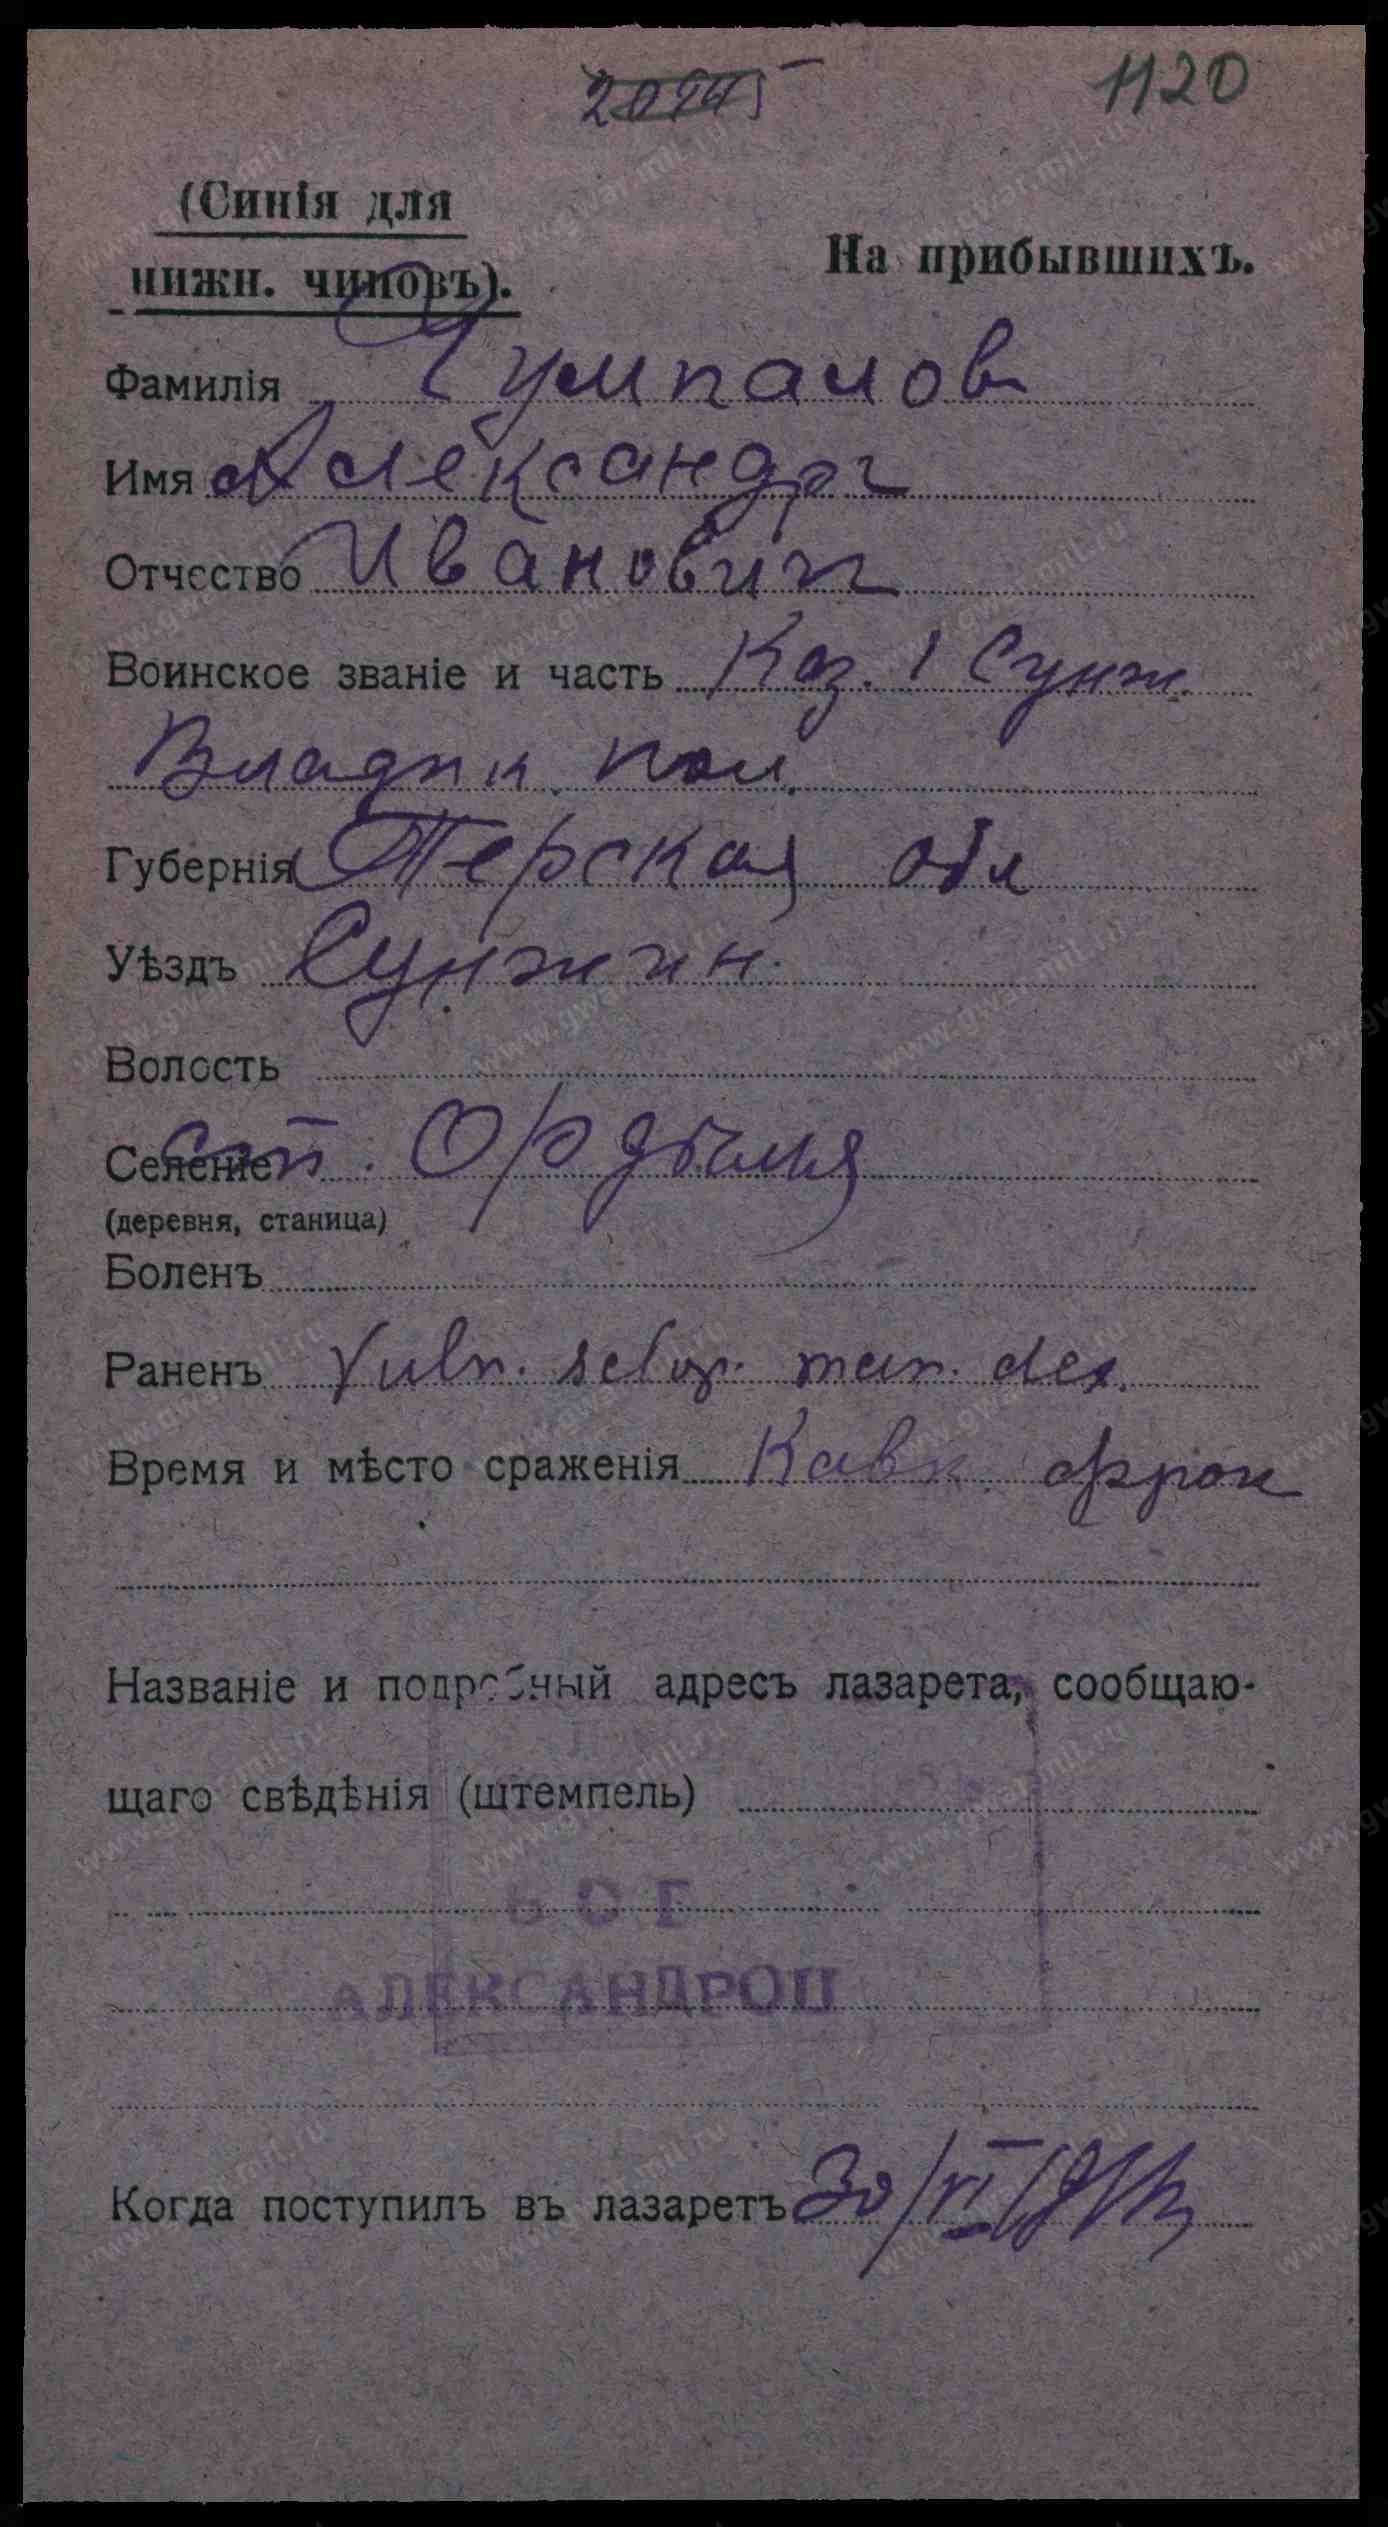 1120
(Синія для
нижн. чиновъ).
На прибывшихъ.
Фамилія Гумпалов
Имя Александръ
Отчество Иванович
Воинское званіе и часть Каз. 1 Сунж.
Владик. пол.
Губернія Терская обл
Уѣздъ Сунжин.
Волость
Селеніе ст.
(деревня, станица)
Боленъ
Раненъ Vuln. sclop. man. dex.
Время и мѣсто сраженія Кавк. фрон
Названіе и подробный адресъ лазарета, сообщаю-
щаго свѣдѣнія (штемпель)
АЛЕКСАНДРОП
Когда поступилъ въ лазаретъ 30/VI